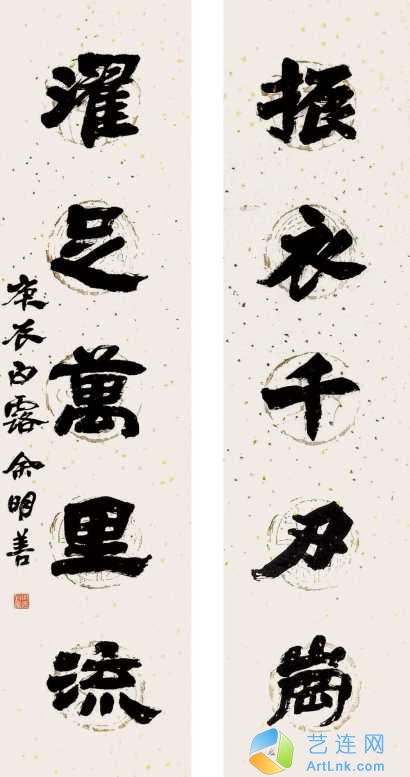 振衣千刃崗
濯足萬里流
庚辰白露余明善
艺连网
ArtLnk.com